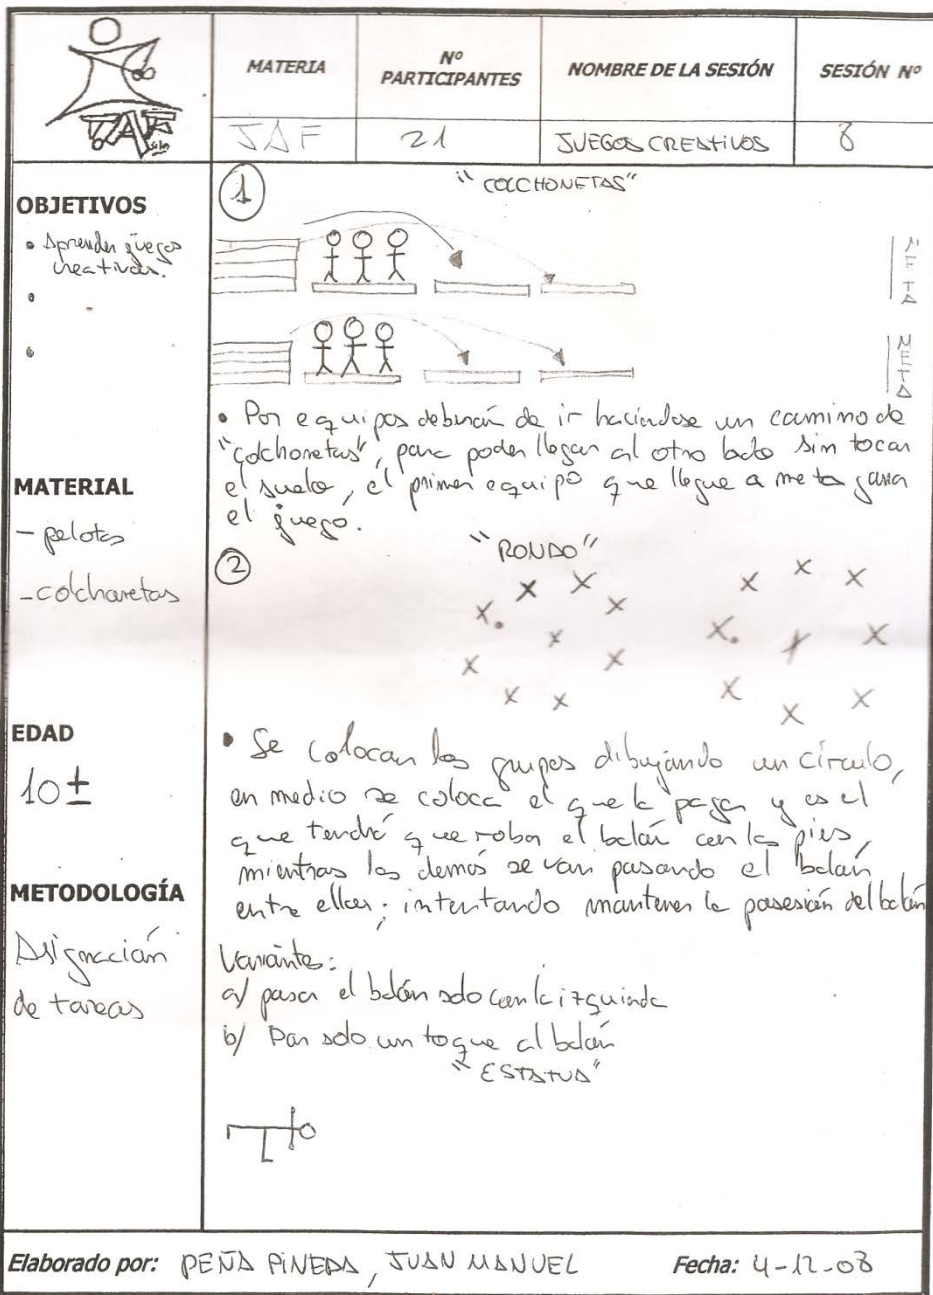 MATERIA
Nº PARTICIPANTES
NOMBRE DE LA SESIÓN
SESIÓN Nº
JAF
21
JUEGOS CREATIVOS
8
OBJETIVOS
• Aprender juegos
creativos.
MATERIAL
- pelotas
- colchonetas
EDAD
10 ±
METODOLOGÍA
Asignación
de tareas
1
"COLCHONETAS"
META
META
• Por equipos deberán de ir haciéndose un camino de
"colchonetas", para poder llegar al otro lado sin tocar
el suelo, el primer equipo que llegue a meta gana
el juego.
2
"RONDO"
• Se colocan los grupos dibujando un círculo,
en medio se coloca el que la paga y es el
que tendrá que robar el balón con los pies,
mientras los demás se van pasando el balón
entre ellos; intentando mantener la posesión del balón
Variantes:
a/ pasar el balón solo con la izquierda
b/ Dar solo un toque al balón
"ESTATUA"
Elaborado por: PEÑA PINEDA, JUAN MANUEL
Fecha: 4-12-08